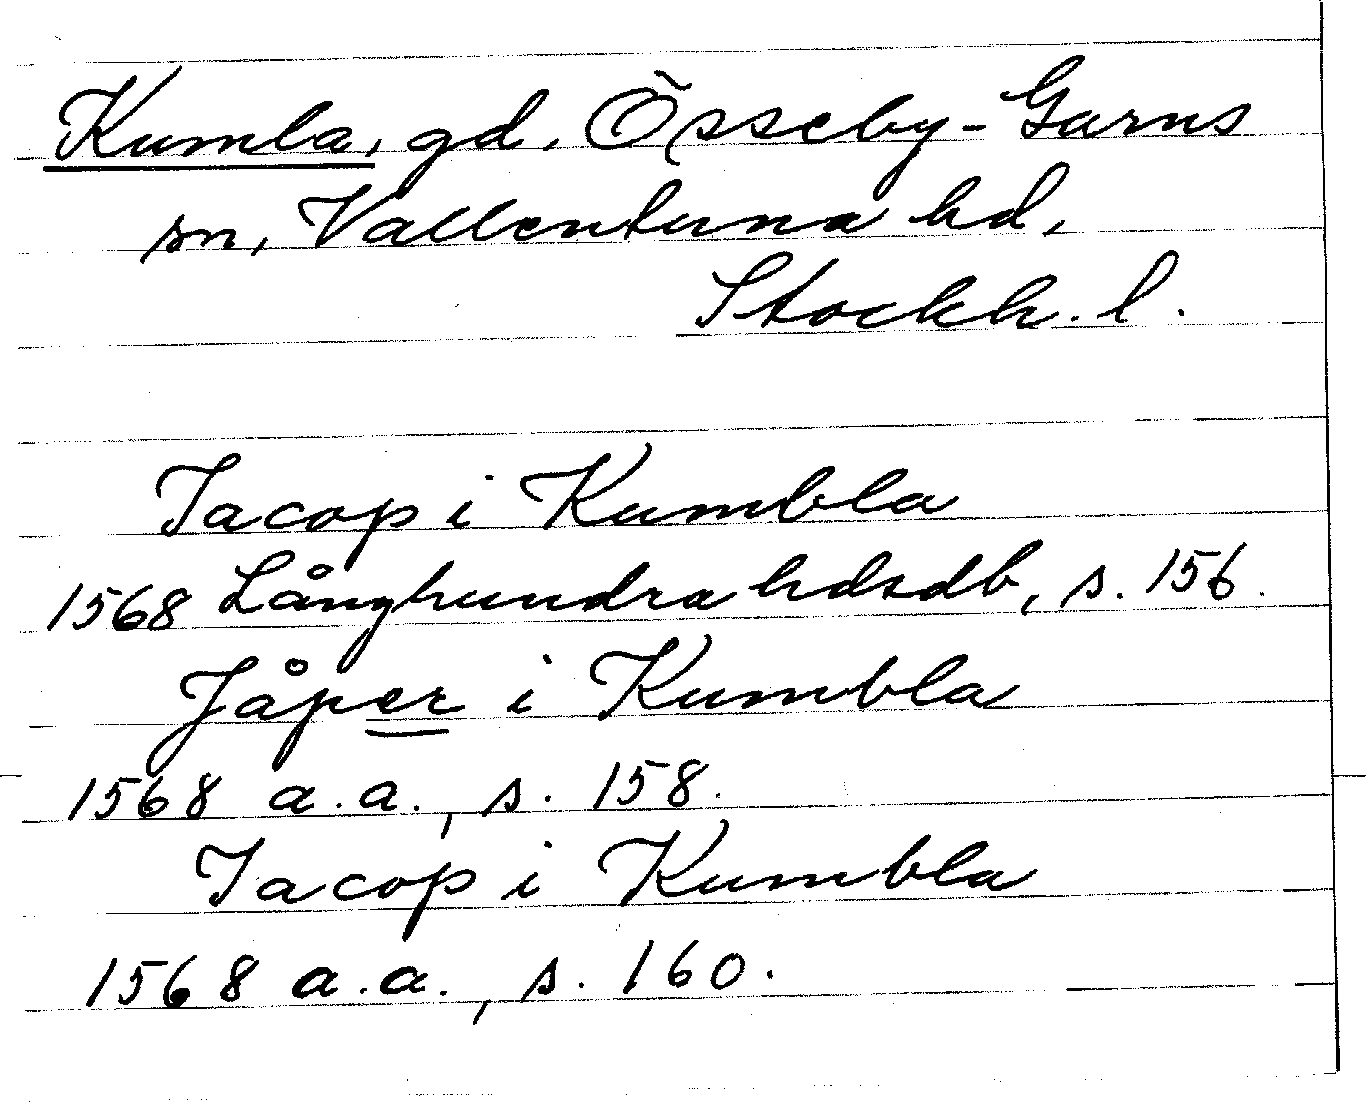 Kumla, gd, Össeby-Garns
sn, Vallentuna hd,
Stockh. l.
Jacop i Kumbla
1568 Långhundra hdsdb, s. 156.
Jåper i Kumbla
1568 a.a., s. 158.
Jacop i Kumbla
1568 a.a., s. 160.